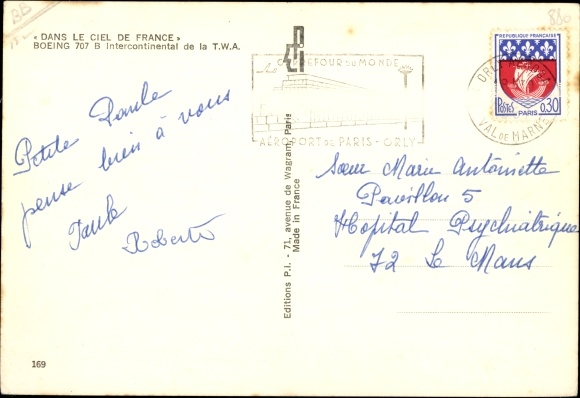 « DANS LE CIEL DE FRANCE »
BOEING 707 B Intercontinental de la T.W.A.
Petite Paule
pense bien à vous
Paule
Roberto
169
Editions P.I. - 71, avenue de Wagram, Paris
Made in France
CARREFOUR DU MONDE
AÉROPORT DE PARIS - ORLY
ORLY
VAL DE MARNE
RÉPUBLIQUE FRANÇAISE
POSTES 0,30
PARIS
860
BB
Sœur Marie Antoinette
Pavillon 5
Hôpital Psychiatrique
72 Le Mans